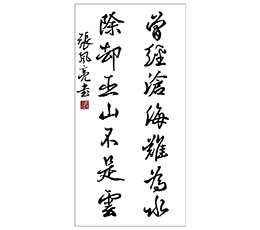 曾經滄海難為水
除却巫山不是雲
張風亮書